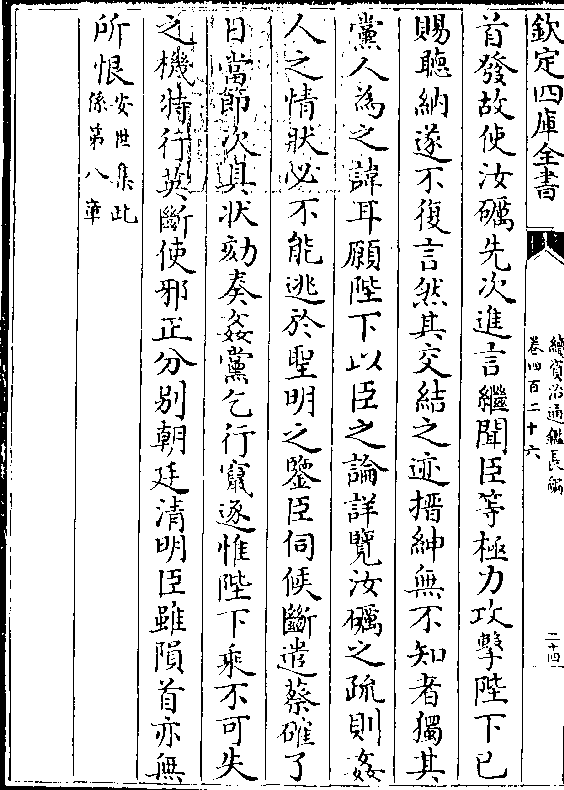 欽定四庫全書
續資治通鑑長編
卷四百二十六
二十四
首發故使汝礪先次進言繼聞臣等極力攻擊陛下已
賜聽納遂不復言然其交結之迹搢紳無不知者獨其
黨人為之諱耳願陛下以臣之論詳覽汝礪之疏則姦
人之情狀必不能逃於聖明之鑒臣伺候斷遣蔡確了
日當節次具狀劾奏姦黨乞行竄逐惟陛下乘不可失
之機特行英斷使邪正分別朝廷清明臣雖隕首亦無
所恨
安世集此
係第八章